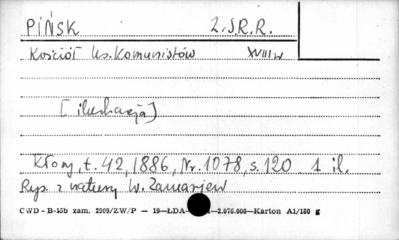 PIŃSK Z.S.R.R.
Kościół ks. Komunistów XVIII w
[ilustracja]
Kłosy, t. 42, 1886, Nr. 1078, s. 120 1 il.
Rys. z natury W. Zamarajew
CWD - B-55b zam. 2909/ZW/P — 19—ŁDA- —2.076.000—Karton A1/180 g